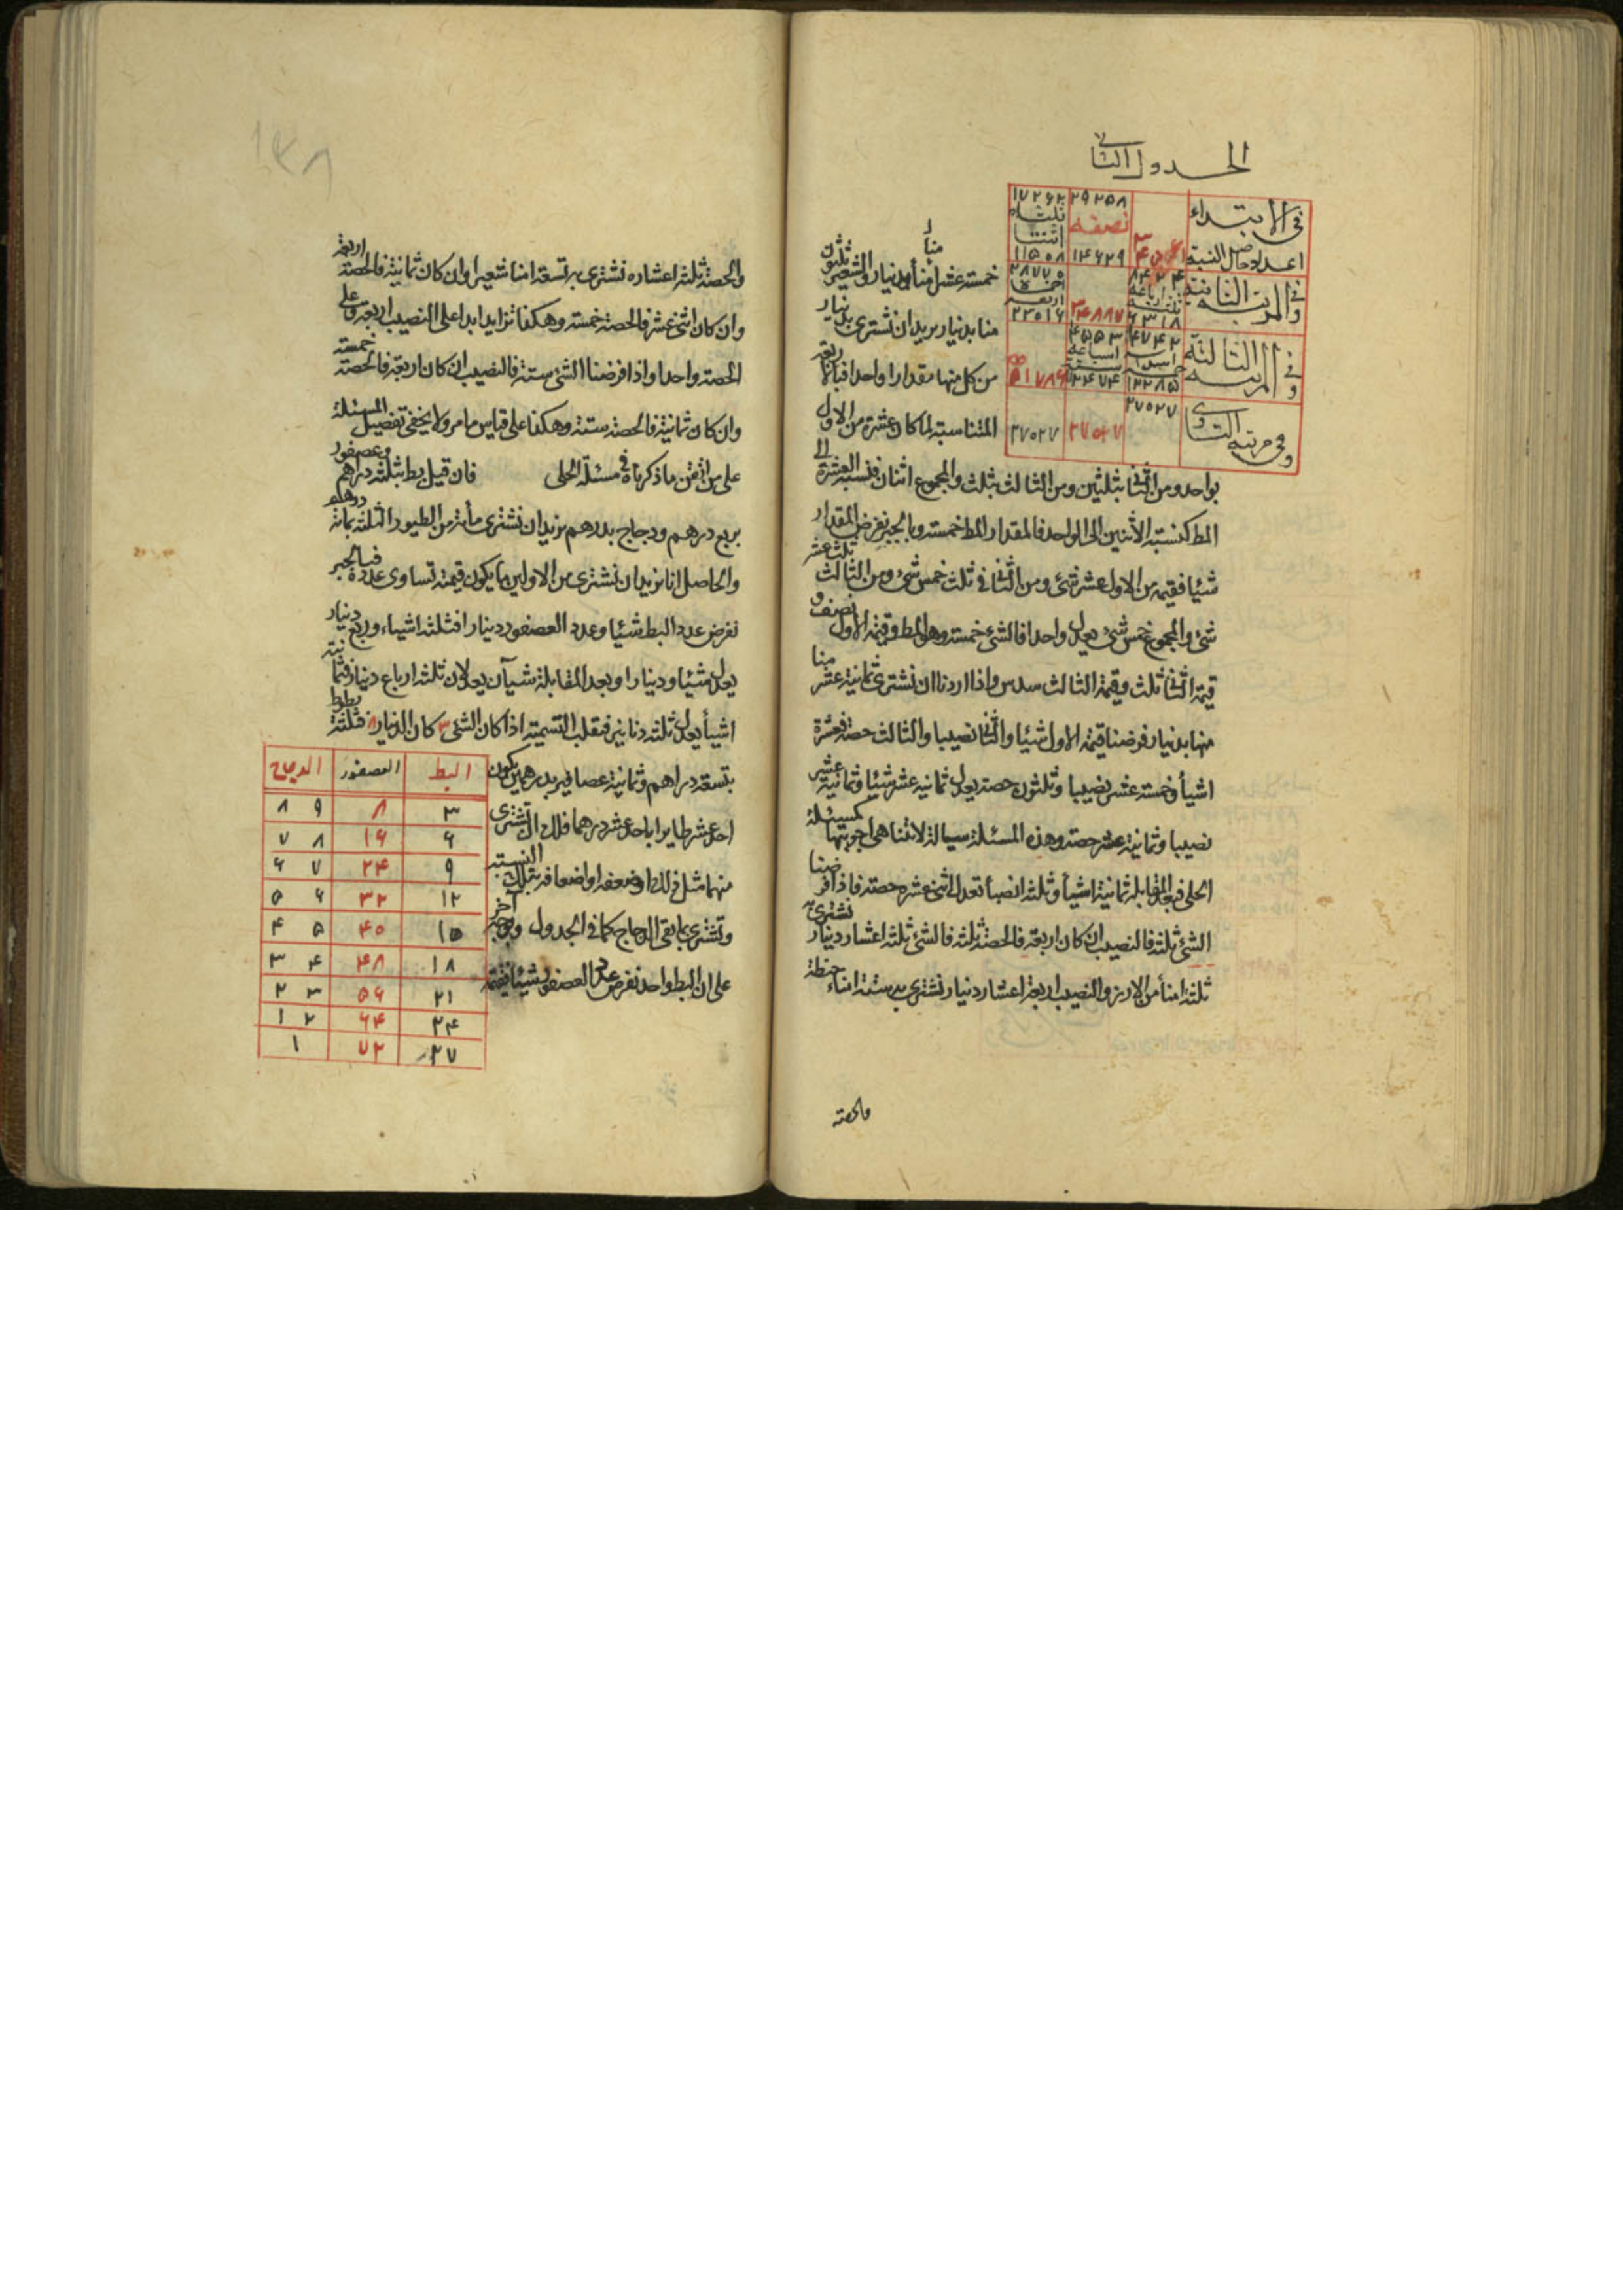 الجدول الثاني
في الابتداء
١٧٢٦٢
٢٩٢٥٨
نصفه
١٤٦٢٩
١١٥٠٨
وفي المرتبة الثانية
٢٣٠١٦
٦٣١٨
وفي المرتبة الثالثة
وفي مرتبة التساوي
٢٧٥٢٧
٢٧٥٢٧
٢٧٥٢٧
منا بدينار يريد ان نشتري بدينار
من كل منها مقدارا واحدا فبالاربعة
المتناسبة لما كان عشرة من الاول
بواحد ومن الثاني بثلثين ومن الثالث بثلث والمجموع اثنان فنسبة العشرة الى
المط كنسبة الاثنين الى الواحد فالمقدار المط خمسة وبالجبر نفرض المقدار
شيئا فقيمته من الاول عشر شئ ومن الثاني ثلث خمس شئ ومن الثالث ثلث عشر
شئ والمجموع خمس شئ يعدل واحدا فالشئ خمسة وهو المط وقيمة الاول نصف و
قيمة الثاني ثلث وقيمة الثالث سدس واذا اردنا ان نشتري ثمانية عشر منا
منها بدينار فرضنا قيمة الاول شيئا والثاني نصيبا والثالث حصة فعشرة
اشيأ وخمسة عشر نصيبا وثلثون حصة يعدل ثمانية عشر شيئا وثمانية عشر
نصيبا وثمانية عشر حصة وهذه المسئلة سيالة لا تتناهى اجوبتها كمسئلة
الحلى فبعد المقابلة ثمانية اشيأ وثلثة انصبأ تعدل اثنى عشر حصة فاذا فرضنا
الشئ ثلثة فالنصيب ان كان اربعة فالحصة ثلثة فالشئ ثلثة اعشار دينار نشتري به
ثلثة امنأ من الارز والنصيب اربعة اعشار دينار نشتري به ستة امناء حنطة
والحصة
١٣٨
والحصة ثلثة اعشاره نشتري به تسعة امنا شعيرا وان كان ثمانية فالحصة اربعة
وان كان اثنى عشر فالحصة خمسة وهكذا تزايد ابدا على النصيب اربعة وعلى
الحصة واحدا واذا فرضنا الشئ ستة فالنصيب ان كان اربعة فالحصة خمسة
وان كان ثمانية فالحصة ستة وهكذا على قياس ما مر ولا يخفى تفصيل المسئلة
على من اتقن ما ذكرناه في مسئلة الحلى فان قيل بط بثلثة دراهم وعصفور
بربع درهم ودجاج بدرهم نريد ان نشتري مأئة من الطيور الثلثة بمائة درهم
والحاصل انا نريد ان نشتري من الاولين ما يكون قيمته تساوي عدده فبالجبر
نفرض عدد البط شيئا وعدد العصفور دينارا فثلثة اشياء وربع دينار
يعدل شيئا ودينارا وبعد المقابلة شيأن يعدلان ثلثة ارباع دينار فثمانية
اشيأ يعدل ثلثة دنانير فنقلب التسمية اذا كان الشئ ٣ كان الدينار ٨ فثلثة بطوط
بتسعة دراهم وثمانية عصافير بدرهمين يكون
احد عشر طايرا باحد عشر درهما فلك ان تشتري
منهما مثل ذلك او ضعفه او اضعافه بتلك النسبة
وتشتري بما بقى الدجاج كما في الجدول وبوجه آخر
على ان البط واحد نفرض عدد العصفور شيئا فقيمته
البط العصفور الدجاج
٣ ٨ ٨٩
٦ ١٦ ٧٨
٩ ٢٤ ٦٧
١٢ ٣٢ ٥٦
١٥ ٤٠ ٤٥
١٨ ٤٨ ٣٤
٢١ ٥٦ ٢٣
٢٤ ٦٤ ١٢
٢٧ ٧٢ ١